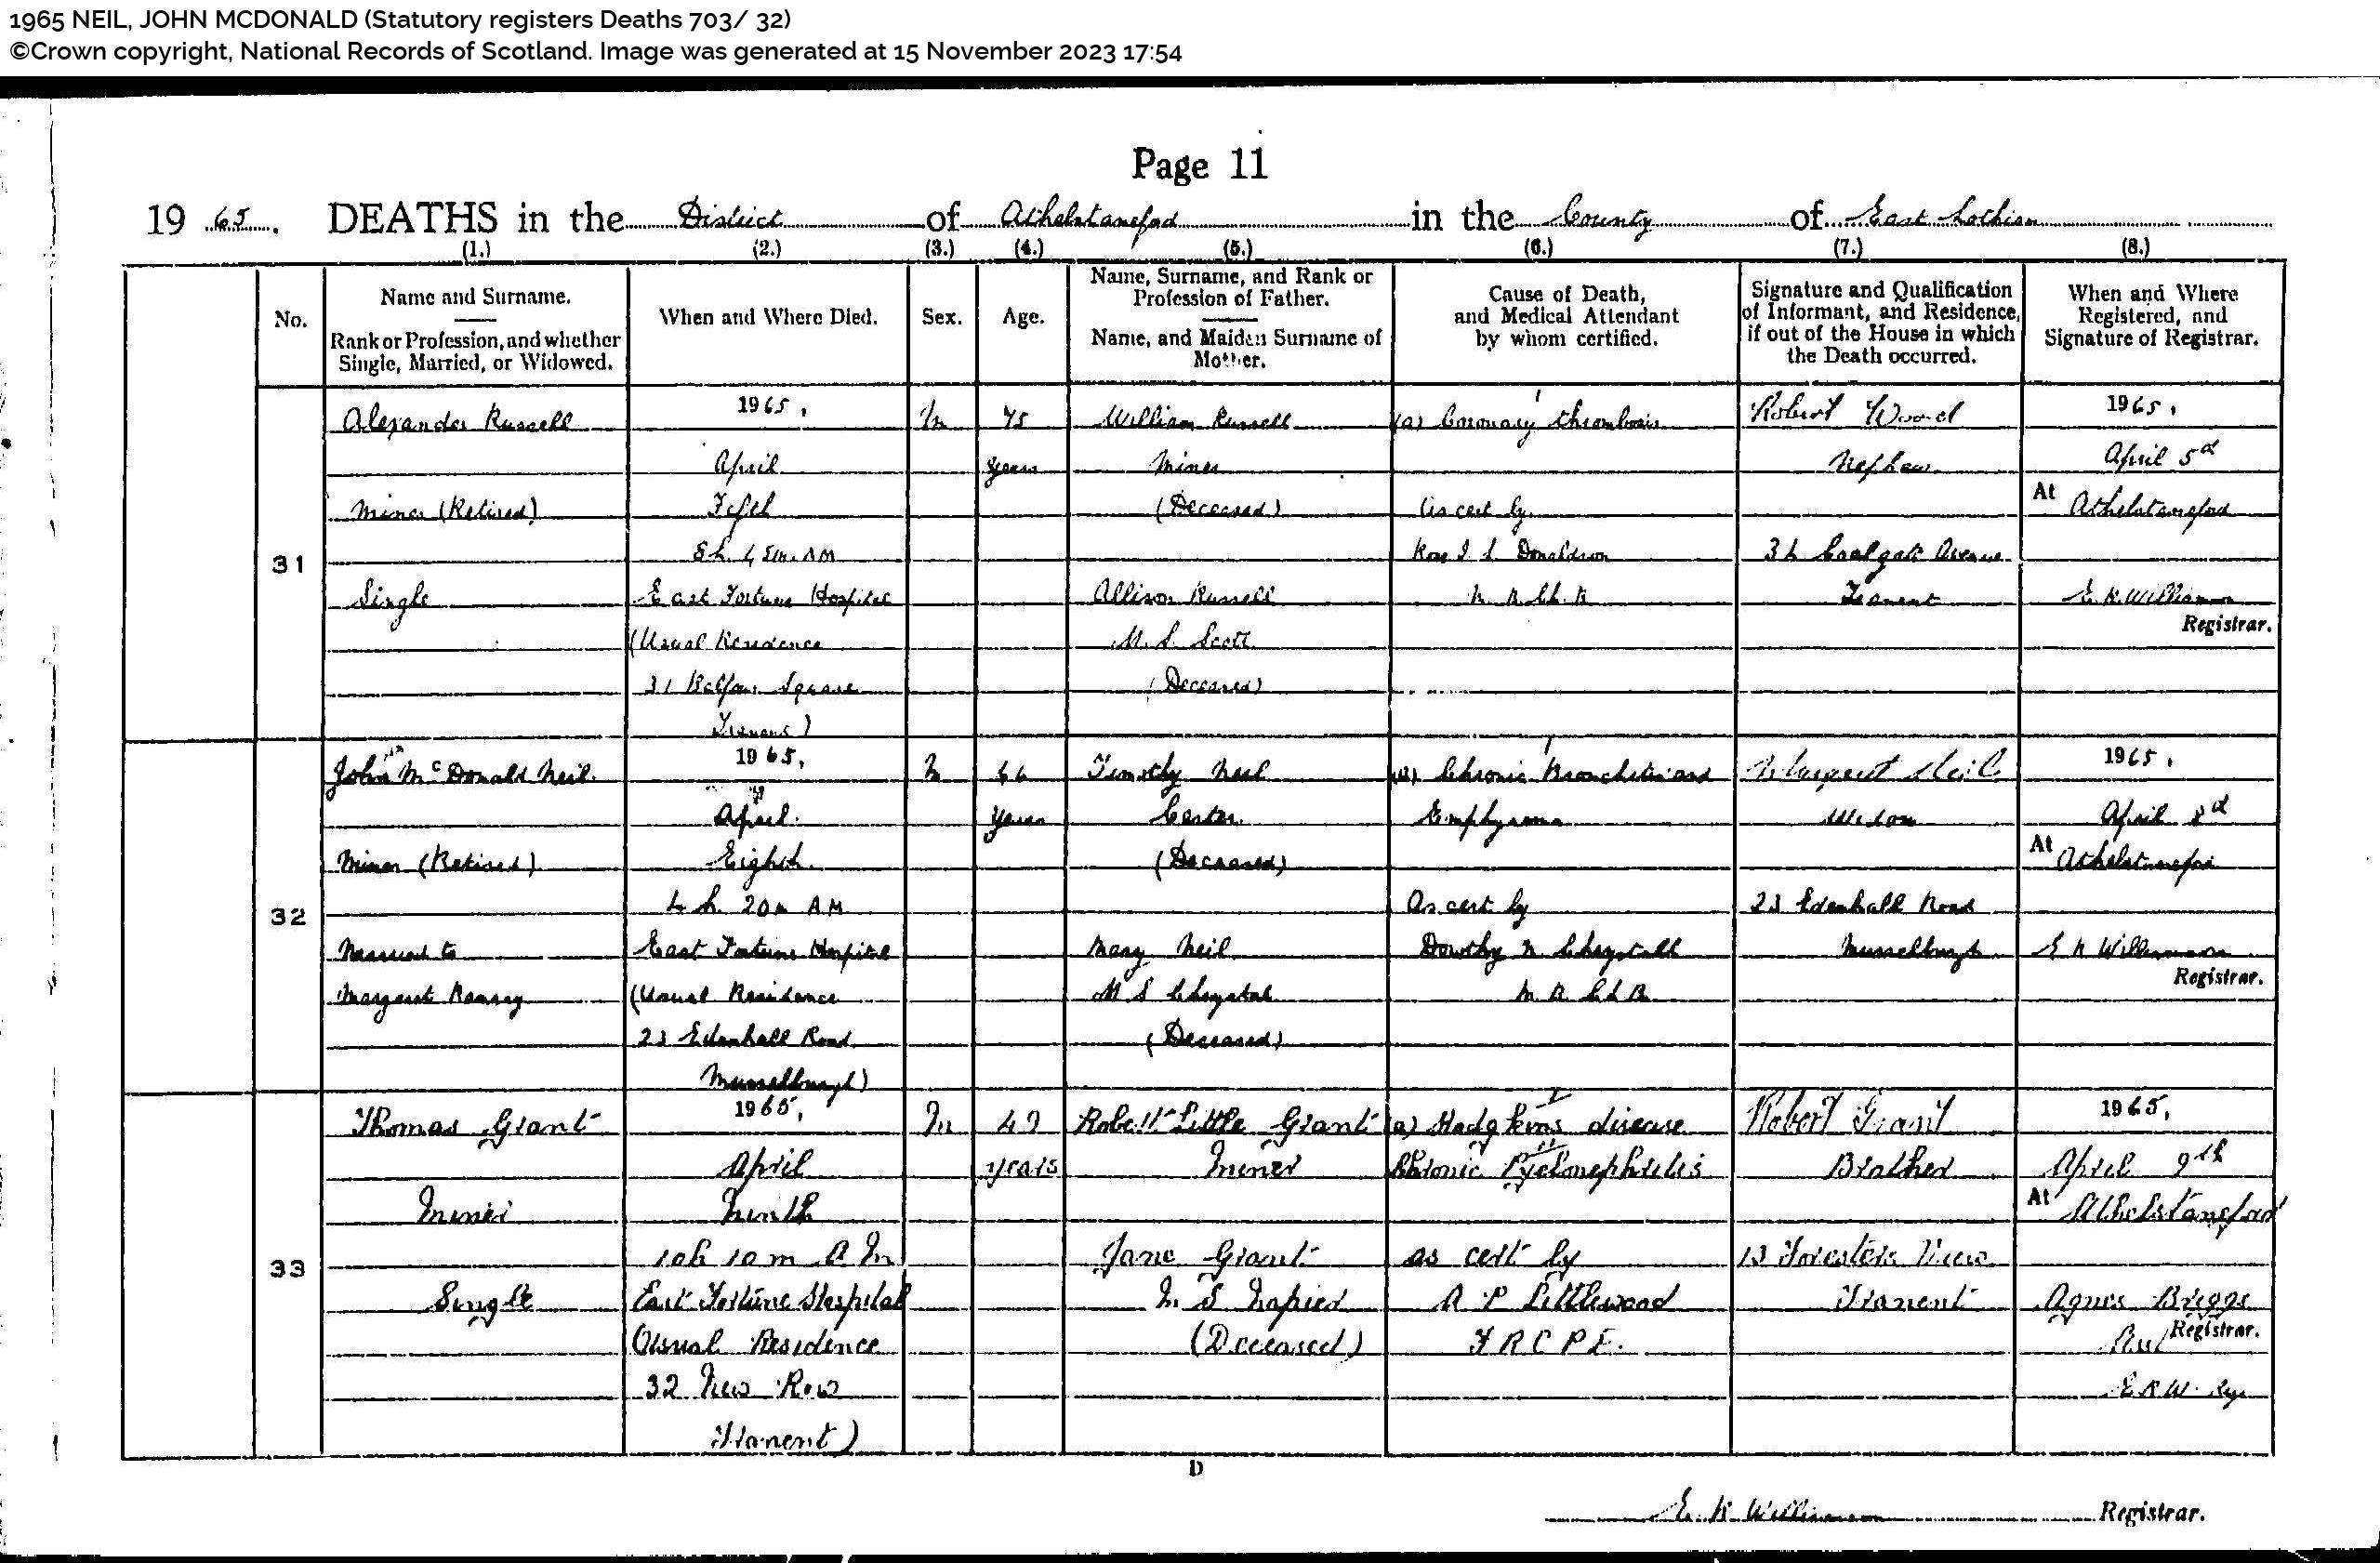 1965 NEIL, JOHN MCDONALD (Statutory registers Deaths 703/ 32)
©Crown copyright, National Records of Scotland. Image was generated at 15 November 2023 17:54
Page 11
19 65. DEATHS in the District of Athelstaneford in the County of East Lothian
(1.) (2.) (3.) (4.) (5.) (6.) (7.) (8.)
No.
Name and Surname.
Rank or Profession, and whether
Single, Married, or Widowed.
When and Where Died.
Sex.
Age.
Name, Surname, and Rank or
Profession of Father.
Name, and Maiden Surname of
Mother.
Cause of Death,
and Medical Attendant
by whom certified.
Signature and Qualification
of Informant, and Residence,
if out of the House in which
the Death occurred.
When and Where
Registered, and
Signature of Registrar.
31
Alexander Russell
Miner (Retired)
Single
1965,
April
Fifth
East Fortune Hospital
(Usual Residence
31 Balfour Square
Tranent)
M
75
years
William Russell
Miner
(Deceased)
Allison Russell
M.S. Scott
(Deceased)
I
(a) Coronary Thrombosis
As cert by
Donaldson
M B Ch. B
Robert Wood
Nephew
Avenue
Tranent
1965,
April 5th
At Athelstaneford
E. K. Williamson
Registrar.
32
John McDonald Neil
Miner (Retired)
Married to
Margaret Ramsay
1965,
April
Eighth
4 h. 20m AM
East Fortune Hospital
(Usual Residence
23 Edenhall Road
Musselburgh)
M
66
years
Timothy Neil
Carter
(Deceased)
Mary Neil
M S Chrystal
(Deceased)
I
(a) Chronic Bronchitis and
Emphysema
As cert by
Dorothy N Chrystall
M B Ch B
Margaret Neil
Widow
23 Edenhall Road
Musselburgh
1965,
April 8th
At Athelstaneford
E K Williamson
Registrar.
33
Thomas Grant
Miner
Single
1965,
April
Ninth
10h 10m A M
East Fortune Hospital
(Usual Residence
32 New Row
Tranent)
M
49
years
Robert Little Grant
Miner
Jane Grant
M S Napier
(Deceased)
I
(a) Hodgkins disease
II
Chronic Pyelonephritis
as cert by
A P Littlewood
F R C P E.
Robert Grant
Brother
13 Foresters View
Tranent
1965,
April 9th
At Athelstaneford
Agnes Briggs
Registrar.
E K W.
D
E. K Williamson Registrar.